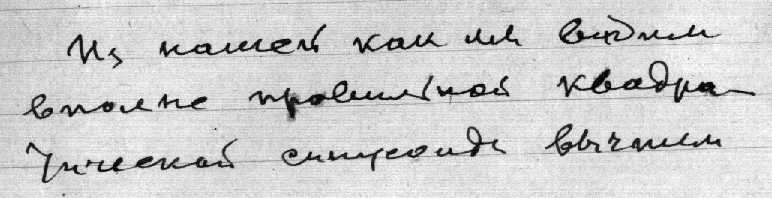 Из нашей как мы видим
вполне правильной квадра-
тической синусоиды вычтем